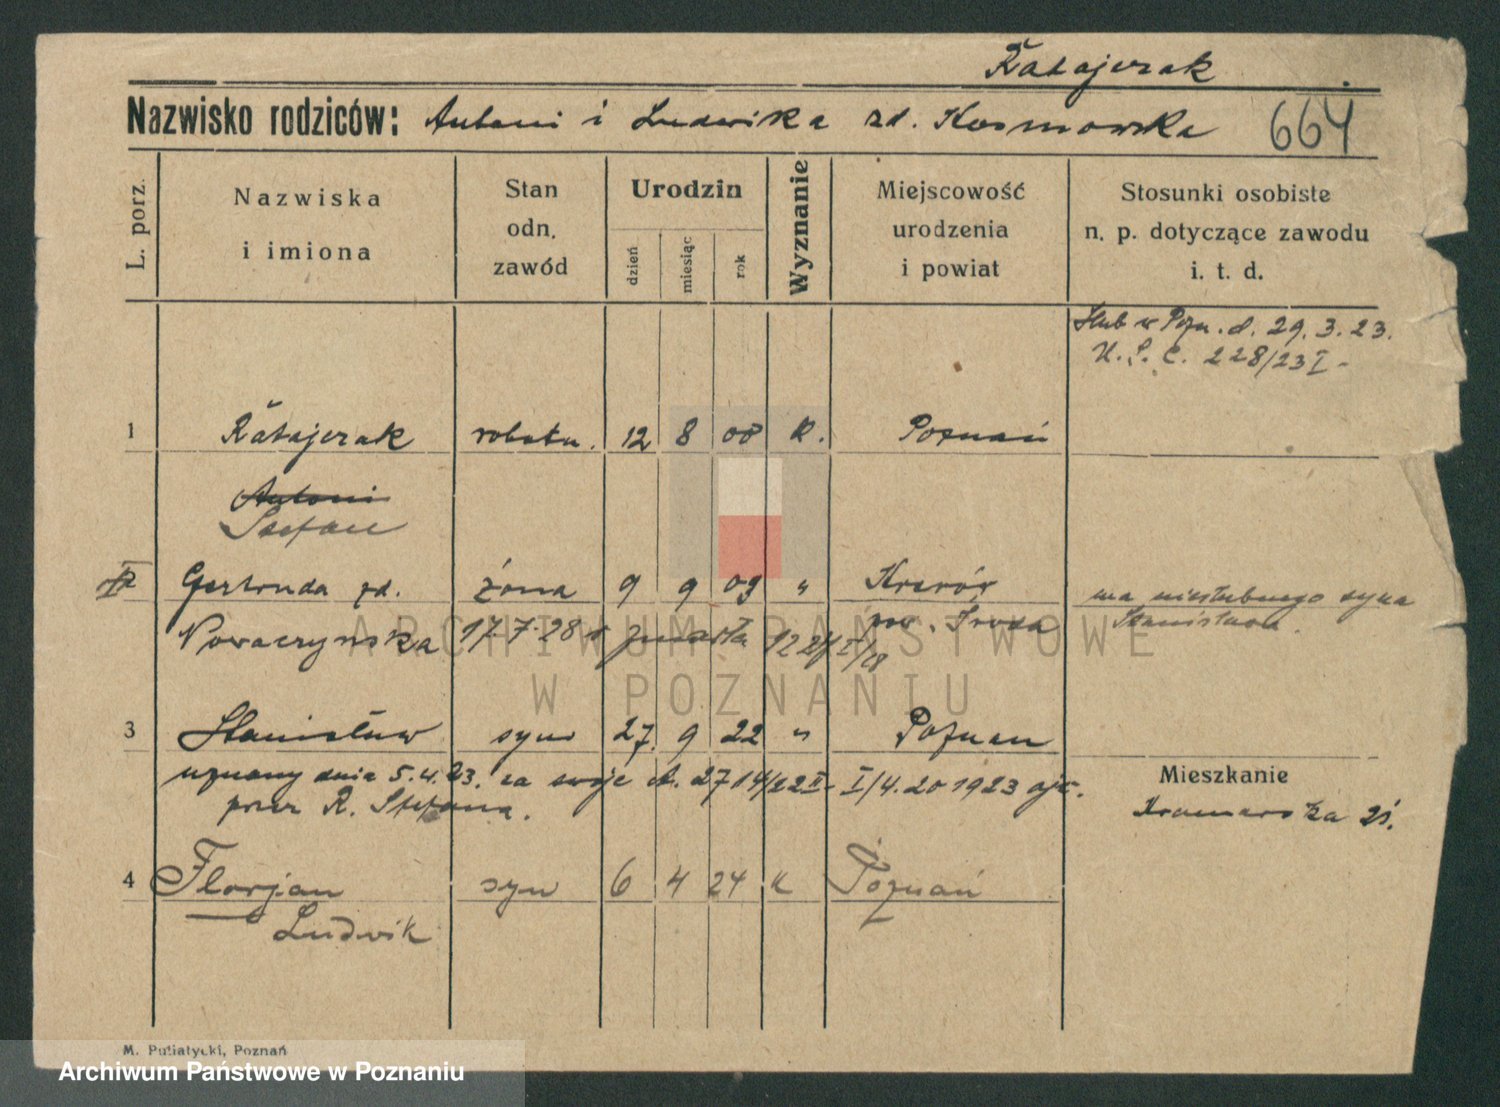 Ratajczak
Nazwisko rodziców: Antoni i Ludwika zd. Kosmowska 664
L. porz. Nazwiska i imiona Stan odn. zawód Urodzin dzień miesiąc rok Wyznanie Miejscowość urodzenia i powiat Stosunki osobiste n. p. dotyczące zawodu i. t. d.
Ślub w Pozn. d. 29. 3. 23.
U. S. C. 228/23 I -
1 Ratajczak robotn. 12 8 00 k. Poznań
Antoni
Stefan
Gertruda zd. żona 9 9 03 " pow. Środa
ma nieślubnego syna
Stanisława.
Nowaczyńska 17.7.28 r zmarła
ARCHIWUM PAŃSTWOWE
W POZNANIU
3 Stanisław syn 27. 9 22 " Poznań
uznany dnia 5.4.23. za swoje A. 2714/22 II - I/4.20 1923
przez R. Stefana.
Mieszkanie
Kramarska 21.
4 Florjan syn 6 4 24 k Poznań
Ludwik
M. Putiatycki, Poznań
Archiwum Państwowe w Poznaniu